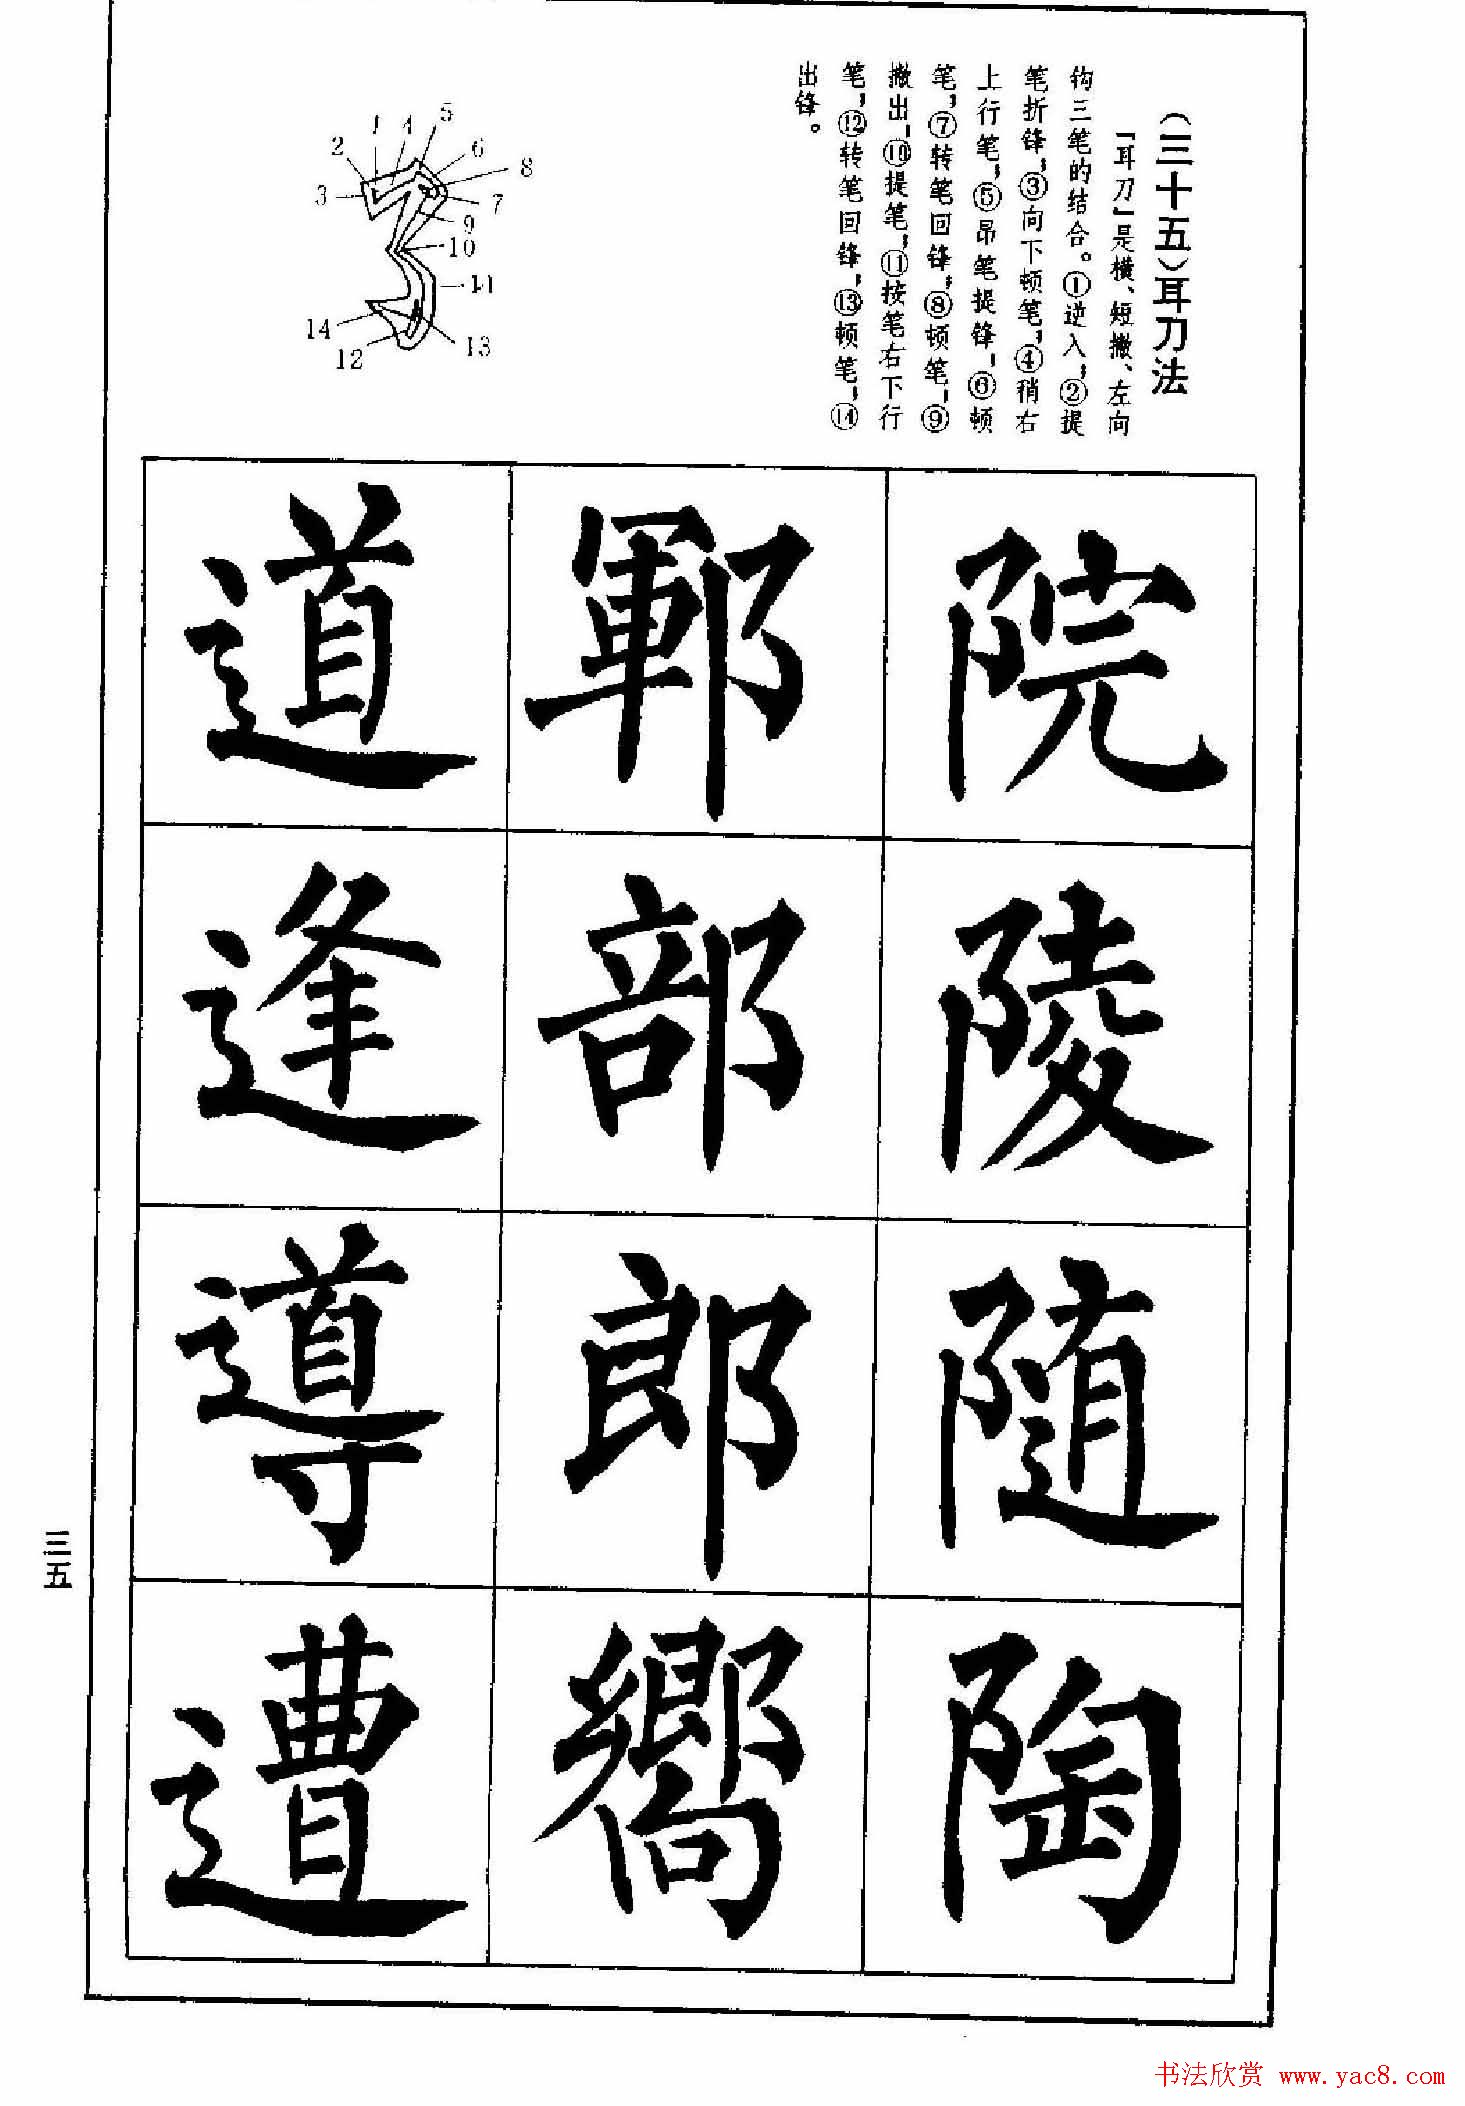 （三十五）耳刀法
『耳刀』是横、短撇、左向
钩三笔的结合。①逆入；②提
笔折锋；③向下顿笔；④稍右
上行笔；⑤昂笔提锋；⑥顿
笔；⑦转笔回锋；⑧顿笔；⑨
撇出；⑩提笔；⑪按笔右下行
笔；⑫转笔回锋；⑬顿笔；⑭
出锋。
1
2
3
4
5
6
7
8
9
10
11
12
13
14
院
陵
随
陶
鄆
部
郎
嚮
道
逢
導
遭
三五
书法欣赏 www.yac8.com